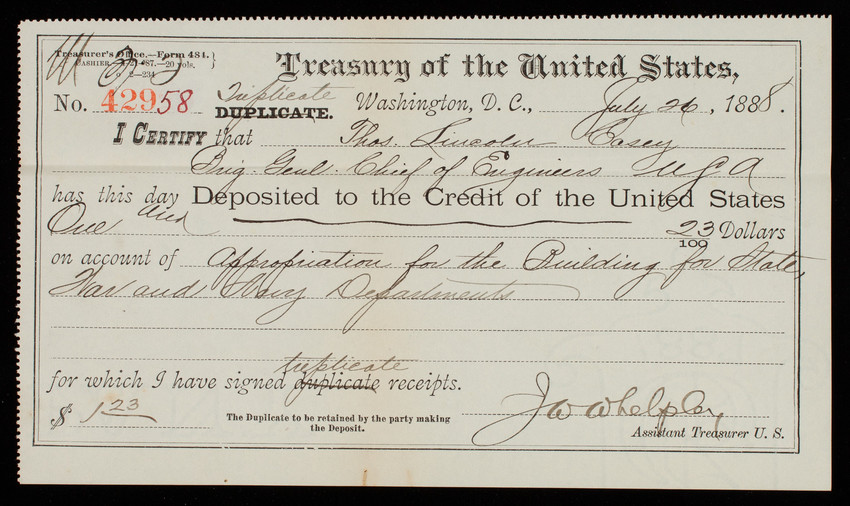 Treasurer's Office.—Form 484.
Treasury of the United States,
No. 42958 Triplicate
DUPLICATE. Washington, D. C., July 26, 1888.
I CERTIFY that Thos. Lincoln Casey
Brig. Genl. Chief of Engineers U S A
has this day Deposited to the Credit of the United States
One and 23/100 Dollars
on account of Appropriation for the Building for State,
War and Navy Departments
triplicate
for which I have signed duplicate receipts.
$ 1 23
The Duplicate to be retained by the party making
the Deposit.
J W Whelpley
Assistant Treasurer U. S.